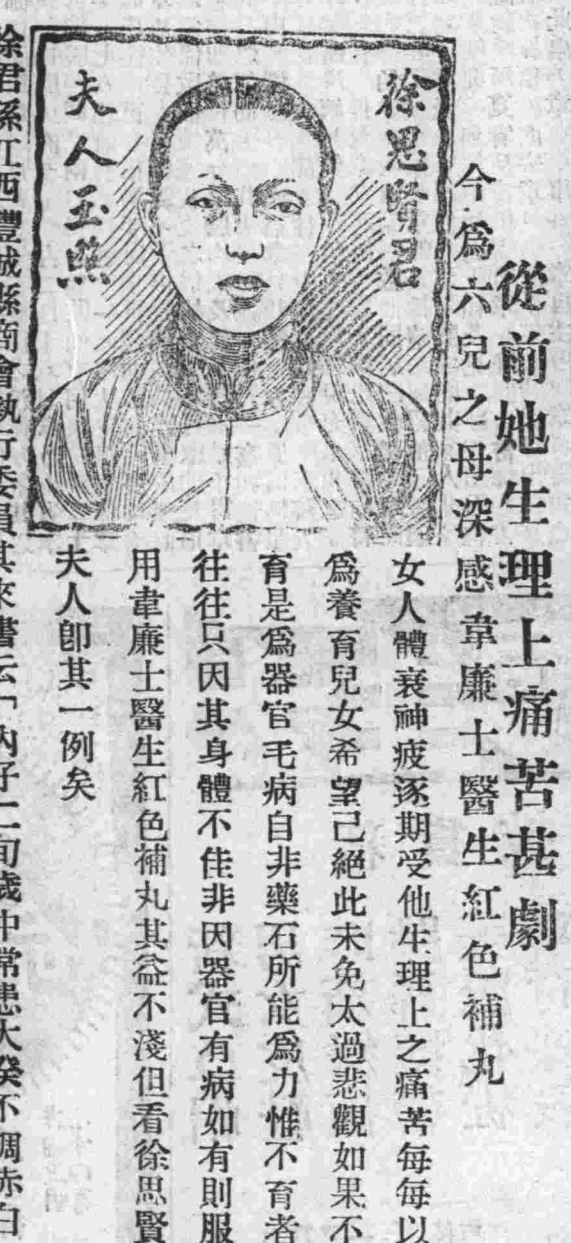 從前她生理上痛苦甚劇
今為六兒之母深感韋廉士醫生紅色補丸
徐思賢君
夫人玉照
女人體衰神疲逐期受他生理上之痛苦每每以
爲養育兒女希望已絕此未免太過悲觀如果不
育是爲器官毛病自非藥石所能爲力惟不育者
往往只因其身體不佳非因器官有病如有則服
用韋廉士醫生紅色補丸其益不淺但看徐思賢
夫人卽其一例矣
徐君係江西豐城縣商會執行委員其來書云「內子二旬歲中常患天癸不調赤白